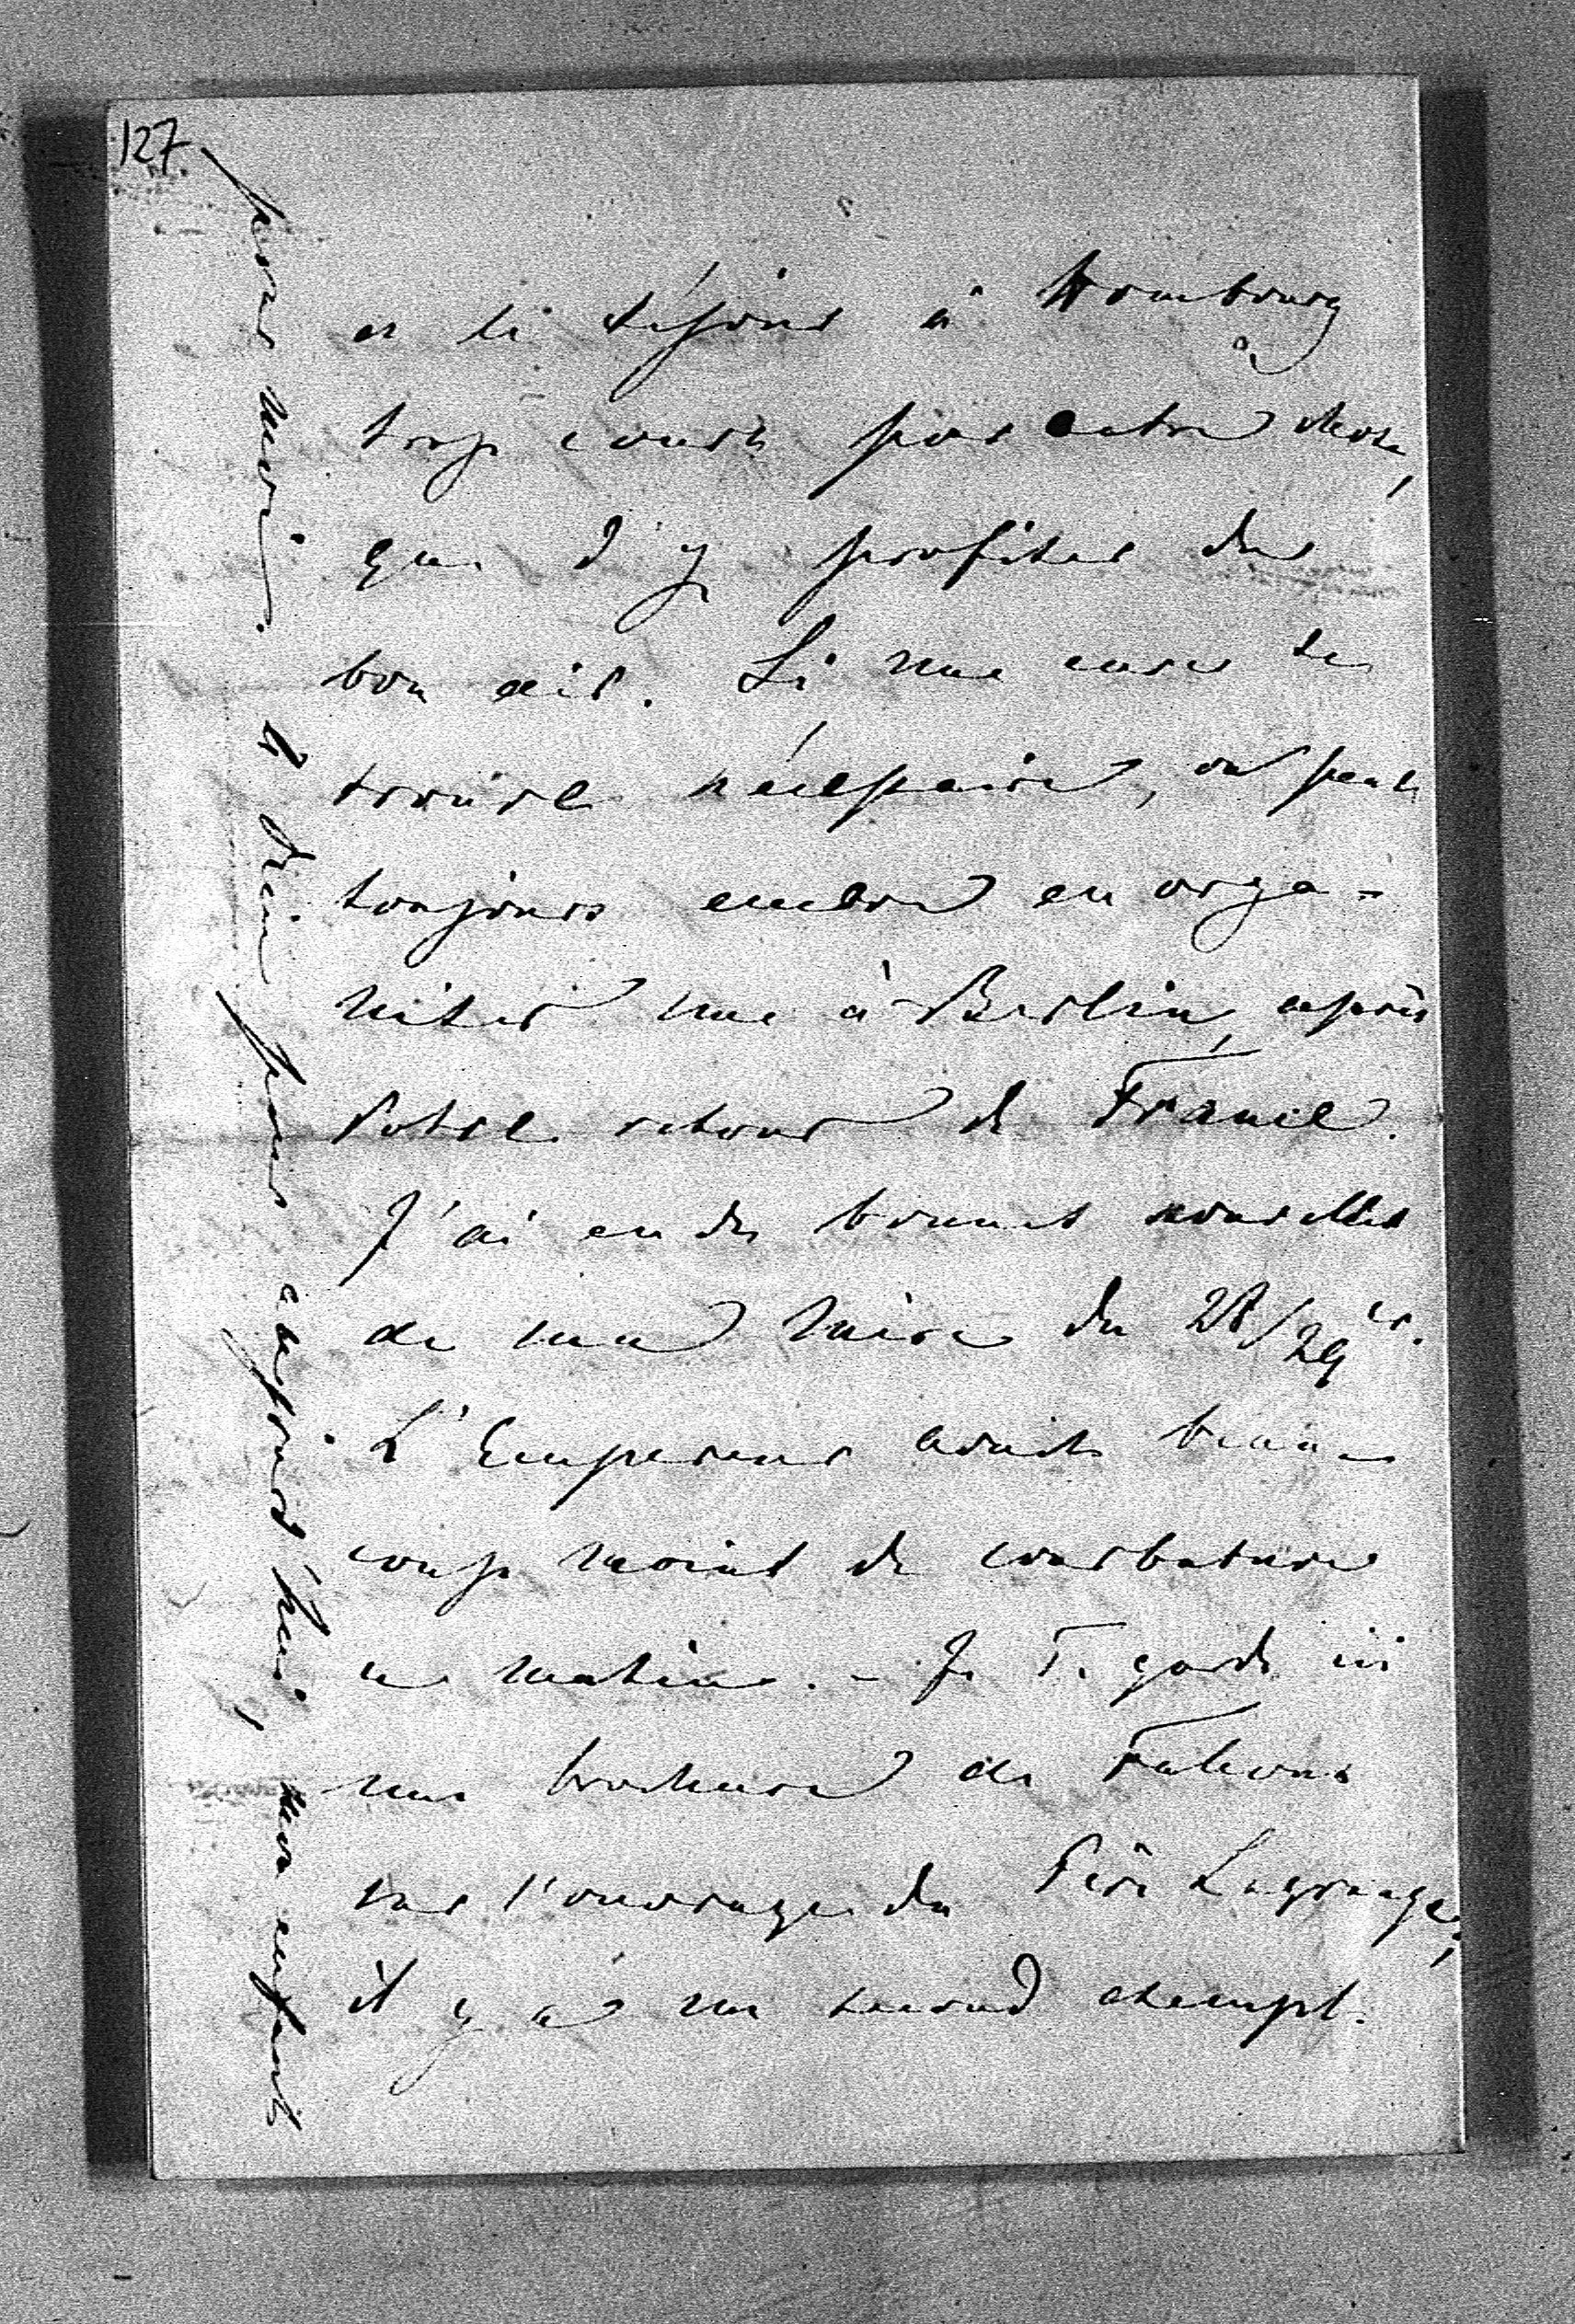 127
et le séjour à Hombourg
trop court pour autre chose,
que d'y profiter du
bon air. Si une cure se
trouve nécessaire, on peut
toujours encore en orga-
niser une à Berlin, après
Votre retour de France.
J'ai eu des bonnes nouvelles
de ma Mère du 28/29 cr.
L'Empereur avait beau-
coup moins de courbature
ce matin. - Je V. garde ici
une brochure de
sur l'ouvrage du Père Lagrange;
il y a un second exempl.
pour moi. et rien pour aujourd'hui, mes enfants